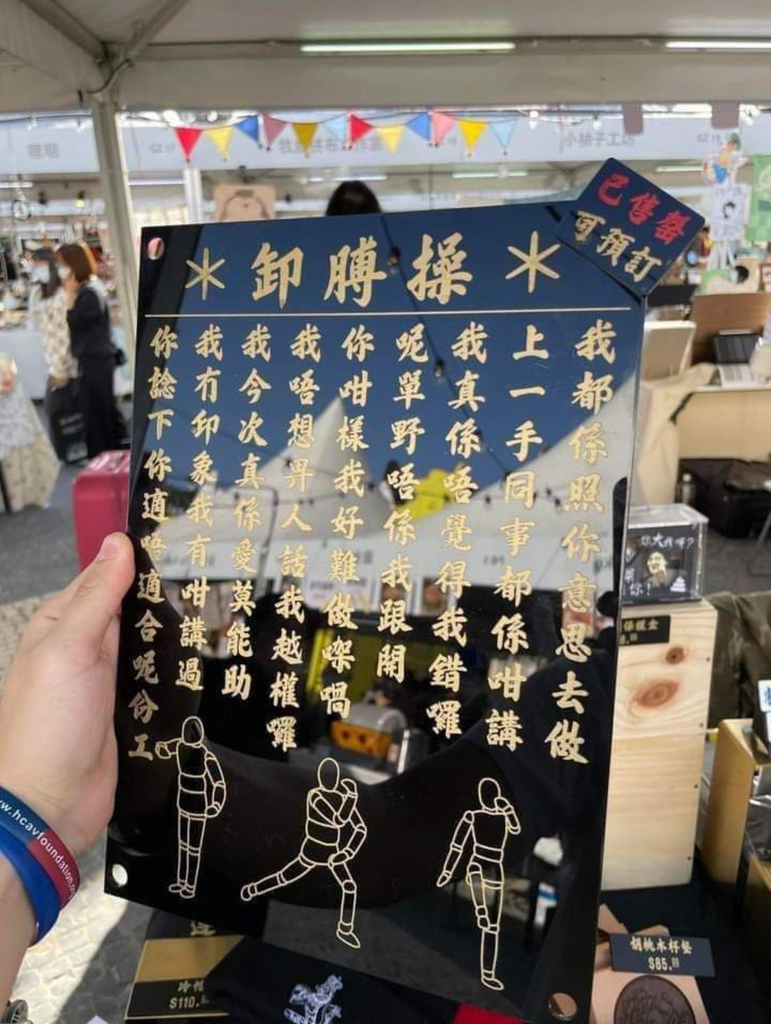 已售罄
可預訂
卸膊操
我都係照你意思去做
上一手同事都係咁講
我真係唔覺得我錯囉
呢單野唔係我跟開
你咁樣我好難做㗎喎
我唔想畀人話我越權囉
我今次真係愛莫能助
我冇印象我有咁講過
你諗下你適唔適合呢份工
www.hcavfoundation
胡桃木杯墊
$85.
$110.
小柚子工坊